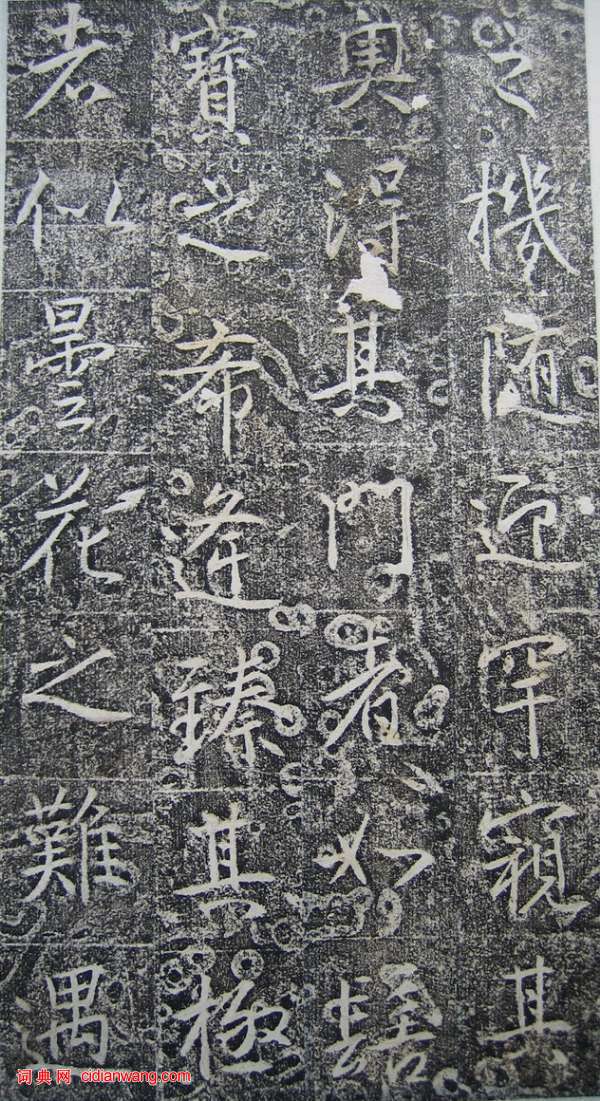 之機随迎罕窺其
奥得其門者如髻
寶之希逢臻其極
者似曇花之難遇
词典网 cidianwang.com